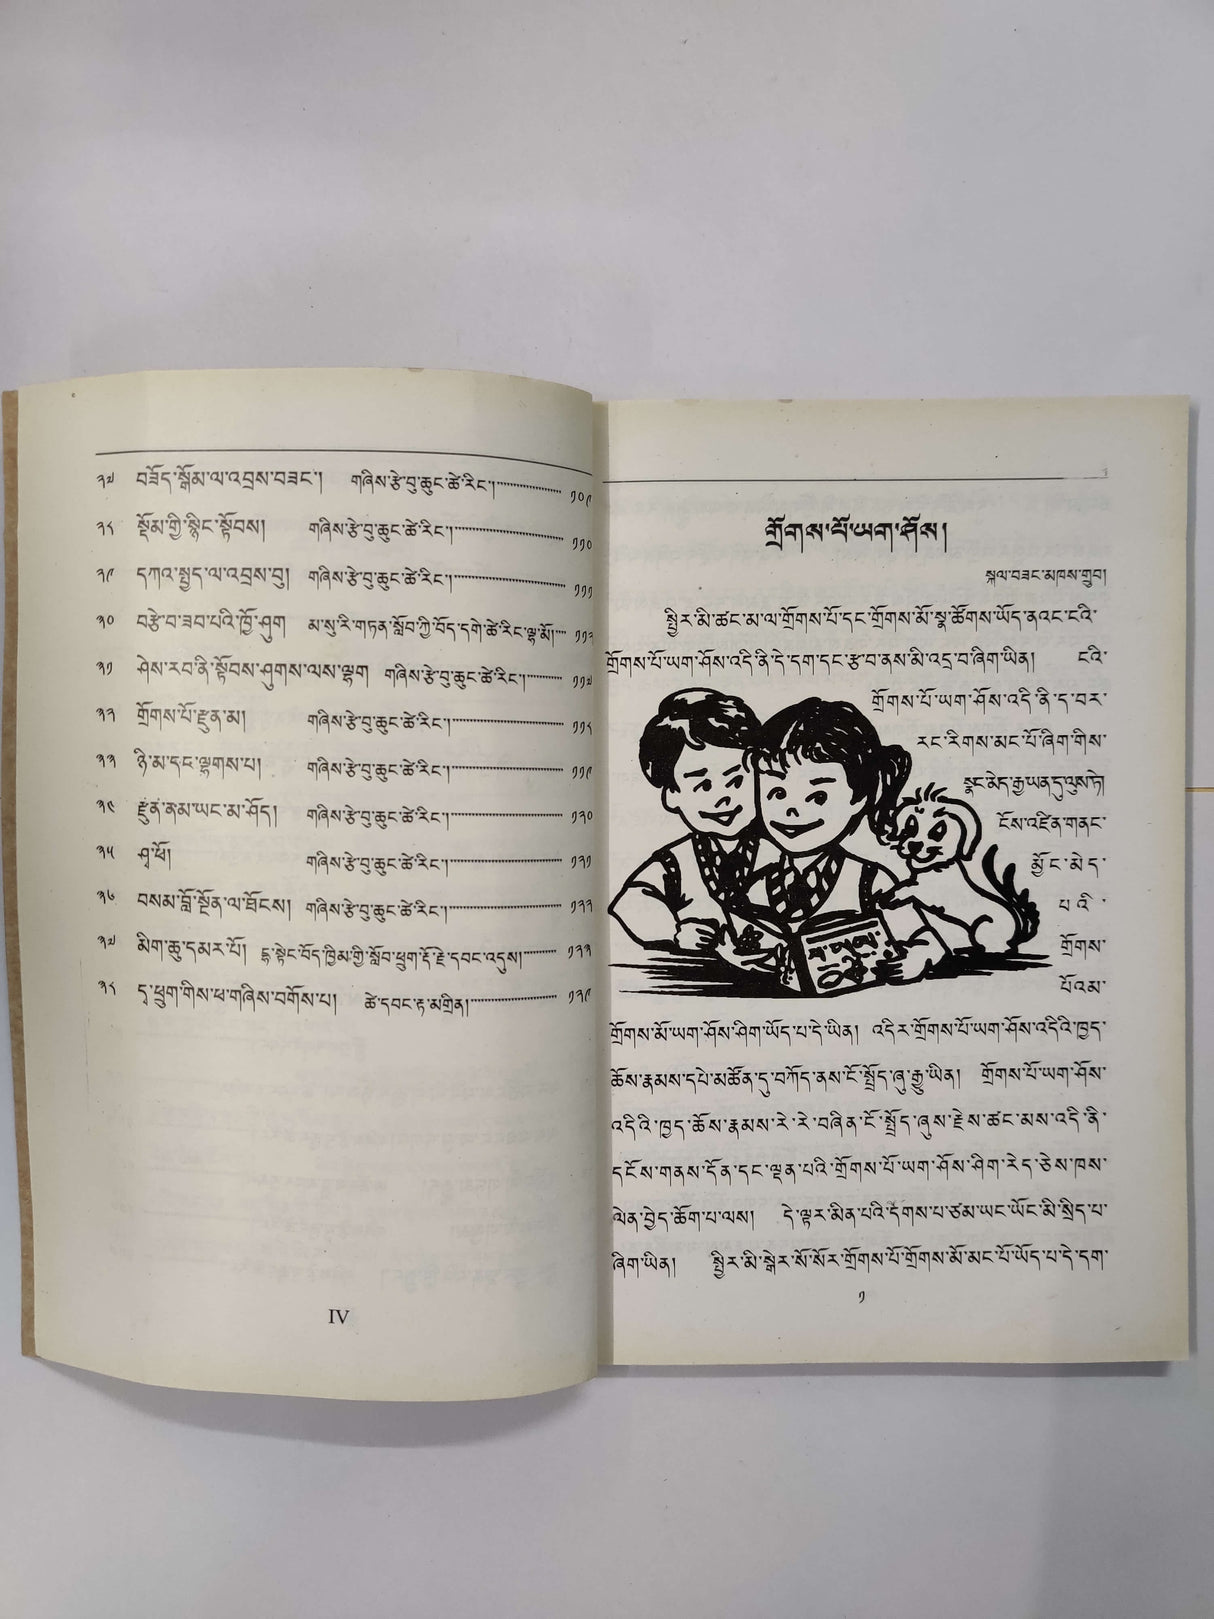 ༢༧ བཟོད་སྒོམ་ལ་འབྲས་བཟང་། གཞིས་རྩེ་བུ་ཆུང་ཚེ་རིང་། ༡༠༩
༢༨ སྡོམ་གྱི་སྙིང་སྟོབས། གཞིས་རྩེ་བུ་ཆུང་ཚེ་རིང་། ༡༡༠
༢༩ དཀའ་སྤྱད་ལ་འབྲས་བུ། གཞིས་རྩེ་བུ་ཆུང་ཚེ་རིང་། ༡༡༡
༣༠ བརྩེ་བ་ཟབ་པའི་ཁྱོ་ཤུག མ་སུ་རི་གཏན་སློབ་ཀྱི་བོད་དགེ་ཚེ་རིང་ལྷ་མོ། ༡༡༢
༣༡ ཤེས་རབ་ནི་སྟོབས་ཤུགས་ལས་ལྷག གཞིས་རྩེ་བུ་ཆུང་ཚེ་རིང་། ༡༡༧
༣༢ གྲོགས་པོ་རྫུན་མ། གཞིས་རྩེ་བུ་ཆུང་ཚེ་རིང་། ༡༡༨
༣༣ ཉི་མ་དང་ལྷགས་པ། གཞིས་རྩེ་བུ་ཆུང་ཚེ་རིང་། ༡༡༩
༣༤ རྫུན་ནམ་ཡང་མ་ཤོད། གཞིས་རྩེ་བུ་ཆུང་ཚེ་རིང་། ༡༢༠
༣༥ ཤྭ་ཕོ། གཞིས་རྩེ་བུ་ཆུང་ཚེ་རིང་། ༡༢༡
༣༦ བསམ་བློ་སྔོན་ལ་ཐོངས། གཞིས་རྩེ་བུ་ཆུང་ཚེ་རིང་། ༡༢༢
༣༧ མིག་ཆུ་དམར་པོ། སྟེང་བོད་ཁྱིམ་གྱི་སློབ་ཕྲུག་རྡོ་རྗེ་དབང་འདུས། ༡༢༣
༣༨ དྭ་ཕྲུག་གིས་ཕ་གཞིས་བགོས་པ། ཚེ་དབང་རྟ་མགྲིན། ༡༢༩
IV
གྲོགས་པོ་ཡག་ཤོས།
སྐལ་བཟང་མཁས་གྲུབ།
སྤྱིར་མི་ཚང་མ་ལ་གྲོགས་པོ་དང་གྲོགས་མོ་སྣ་ཚོགས་ཡོད་ནའང་ངའི་
གྲོགས་པོ་ཡག་ཤོས་འདི་ནི་དེ་དག་དང་རྩ་བ་ནས་མི་འདྲ་བ་ཞིག་ཡིན། ངའི་
གྲོགས་པོ་ཡག་ཤོས་འདི་ནི་ད་བར་
རང་རིགས་མང་པོ་ཞིག་གིས་
སྣང་མེད་རྒྱ་ཡན་དུ་ལུས་ཏེ།
ངོས་འཛིན་གནང་
མྱོང་མེད་
པའི་
གྲོགས་
པོའམ་
གྲོགས་མོ་ཡག་ཤོས་ཤིག་ཡོད་པ་དེ་ཡིན། འདིར་གྲོགས་པོ་ཡག་ཤོས་འདིའི་ཁྱད་
ཆོས་རྣམས་དཔེ་མཚོན་དུ་བཀོད་ནས་ངོ་སྤྲོད་ཞུ་རྒྱུ་ཡིན། གྲོགས་པོ་ཡག་ཤོས་
འདིའི་ཁྱད་ཆོས་རྣམས་རེ་རེ་བཞིན་ངོ་སྤྲོད་ཞུས་རྗེས་ཚང་མས་འདི་ནི་
དངོས་གནས་དོན་དང་ལྡན་པའི་གྲོགས་པོ་ཡག་ཤོས་ཤིག་རེད་ཅེས་ཁས་
ལེན་བྱེད་ཆོག་པ་ལས། དེ་ལྟར་མིན་པའི་དོགས་པ་ཙམ་ཡང་ཡོང་མི་སྲིད་པ་
ཞིག་ཡིན། སྤྱིར་མི་སྒེར་སོ་སོར་གྲོགས་པོ་གྲོགས་མོ་མང་པོ་ཡོད་པ་དེ་དག་
༡